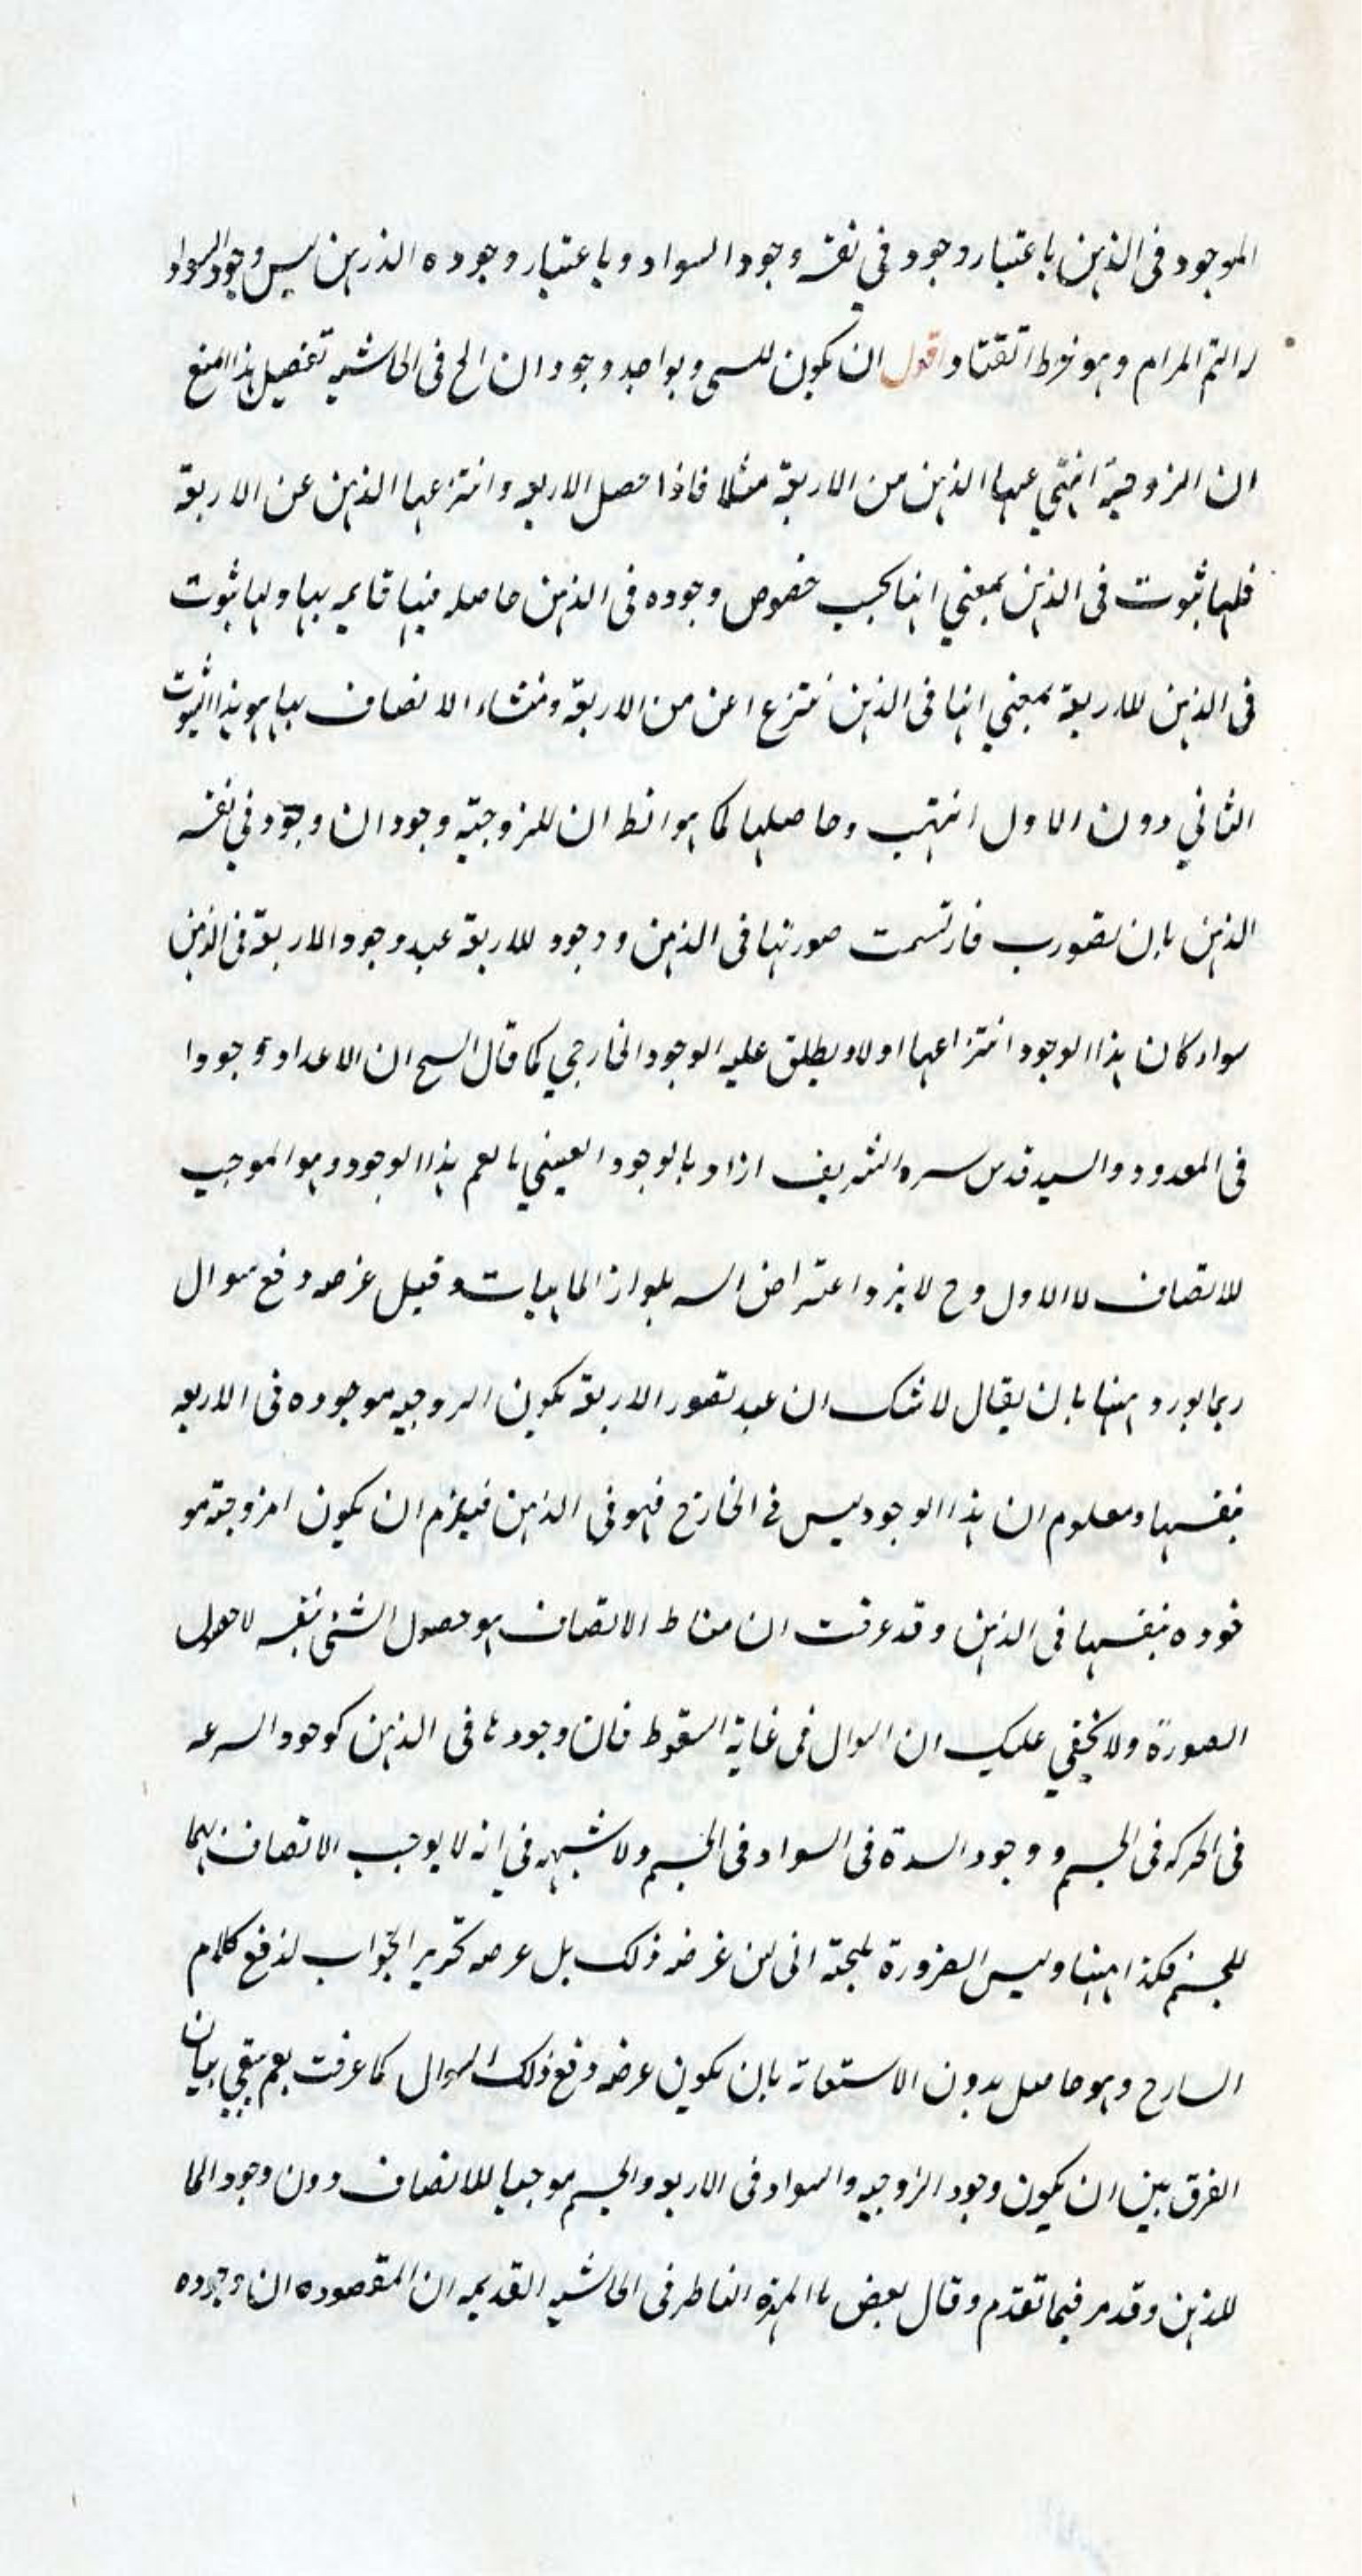 الموجود فى الذهن باعتبار وجود في نفسه وجود السواد وباعتبار وجوده الذهن ليس وجود السواد
له التم المرام وهو خرط القتاد اقول ان يكون للشى وبواحد وجود ان الخ فى الحاشيه تفصيل هذا المنع
ان الزوجية انتزعها الذهن من الاربعة مثلا فاذا حصل الاربعه وانتزعها الذهن عن الاربعة
فلها ثبوت فى الذهن بمعني انها بحسب خصوص وجوده فى الذهن حاصله فيها قايمه بها ولها ثبوت
فى الذهن للاربعة بمعني انها فى الذهن منتزع اعن من الاربعة ومنشاء الاتصاف بها هو هذا الثبوت
الثاني دون الاول انتهى وحاصلها كما هو الظ ان للزوجية وجود ان وجود في نفسه
الذهن بان تصورت فارتسمت صورتها فى الذهن ووجود للاربعة عند وجود الاربعة فى الذهن
سواء كان هذا الوجود انتزاعها اولا ويطلق عليه الوجود الخارجي كما قال الشيخ ان الاعداد وجودا
فى المعدود والسيد قدس سره الشريف اراد بالوجود العيني ما يعم هذا الوجود وهو الموجب
للاتصاف لا الاول وح لا يرد اعتراض السه بلوازم الماهيات وقيل غرضه دفع سوال
ربما يورد ههنا بان يقال لا شك ان عند تصور الاربعة يكون الزوجيه موجوده فى الاربعه
بنفسها ومعلوم ان هذا الوجود ليس في الخارج فهو فى الذهن فيلزم ان يكون الزوجية مو
جوده بنفسها فى الذهن وقد عرفت ان مناط الاتصاف هو حصول الشئ بنفسه لا حصول
الصورة ولا يخفي عليك ان السوال فى غاية السقوط فان وجودها فى الذهن كوجود السرعه
فى الحركه فى الجسم ووجود الشدة فى السواد فى الجسم ولا شبهه في انه لا يوجب الاتصاف بهما
للجسم فكذا ههنا وليس الضرورة ملجئة الى ان غرضه ذلك بل غرضه تحرير الجواب لدفع كلام
الشارح وهو حاصل بدون الاستعانة بان يكون غرضه دفع ذلك السوال كما عرفت نعم بيقى بيان
الفرق بين ان يكون وجود الزوجيه والسواد فى الاربعه والجسم موجبا للاتصاف دون وجود الما
للذهن وقد مر فيما تقدم وقال بعض الناظر فى الحاشيه القديمه ان المقصود ان وجوده